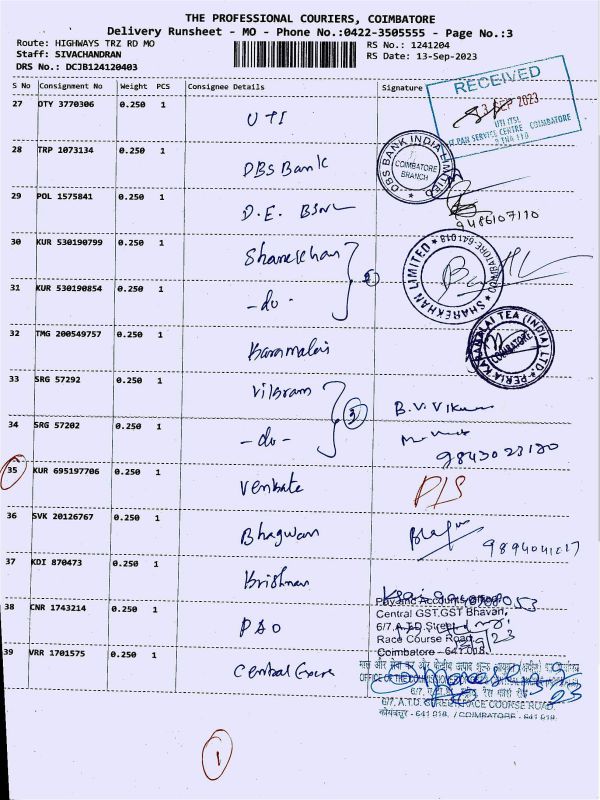 THE PROFESSIONAL COURIERS, COIMBATORE
Delivery Runsheet - MO - Phone No.:0422-3505555 - Page No.:3
Route: HIGHWAYS TRZ RD MO
RS No.: 1241204
Staff: SIVACHANDRAN
RS Date: 13-Sep-2023
DRS No.: DCJB124120403
S No Consignment No Weight PCS Consignee Details Signature
RECEIVED
13 SEP 2023
UTI ITSL
PAN SERVICE CENTRE COIMBATORE
27 DTY 3770306 0.250 1 UTI
28 TRP 1073134 0.250 1 DBS Bank
DBS BANK INDIA LIMITED
COIMBATORE
BRANCH
29 POL 1575841 0.250 1 D.E. BSNL
9486107110
30 KUR 530190799 0.250 1 Sharekhan
SHAREKHAN LIMITED
COIMBATORE-641018
31 KUR 530190854 0.250 1 -do-
2
32 TMG 200549757 0.250 1
PERIA KARAMALAI TEA (INDIA) LTD.
COIMBATORE
33 SRG 57292 0.250 1 Vikram
3
B.V. Vikram
34 SRG 57202 0.250 1 -do-
9843023180
35 KUR 695197706 0.250 1 Venkate
D/S
36 SVK 20126767 0.250 1 Bhagwan
9894041217
37 KDI 870473 0.250 1 Krishnan
38 CNR 1743214 0.250 1 PAO
Pay and Accounts Office
Central GST,GST Bhavan,
6/7, A.T.D. Street,
Race Course Road,
Coimbatore - 641 018.
39 VRR 1701575 0.250 1 Central Excise
6/7, A.T.D. STREET, RACE COURSE ROAD,
कोयंबत्तूर - 641 018. / COIMBATORE - 641 018.
1